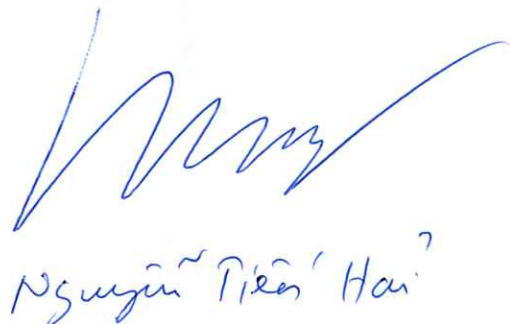 Nguyễn Tiến Hải